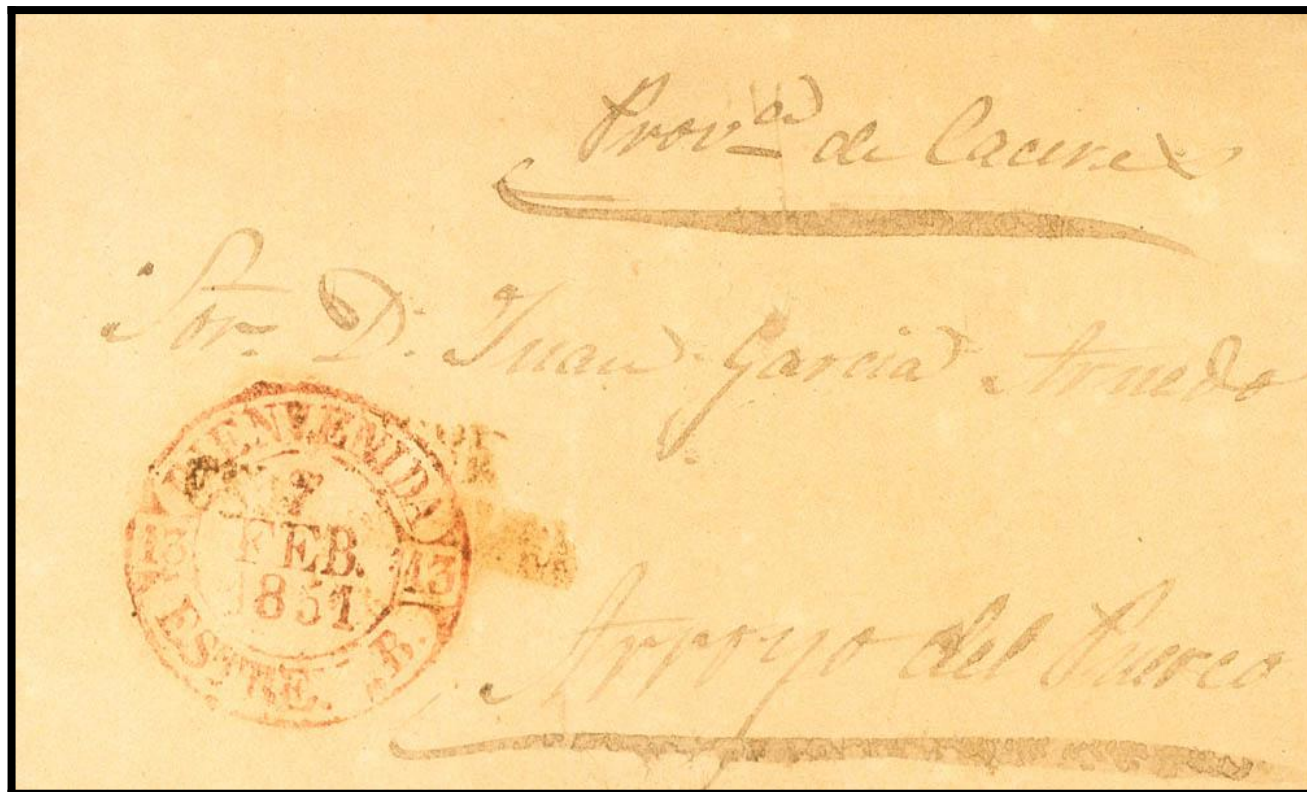 Provª de Caceres
Sor. D. Juan Garcia Arnedo
BIENVENIDA
17
FEB.
1851
13 13
ESTRE. B.
Arroyo del Puerco